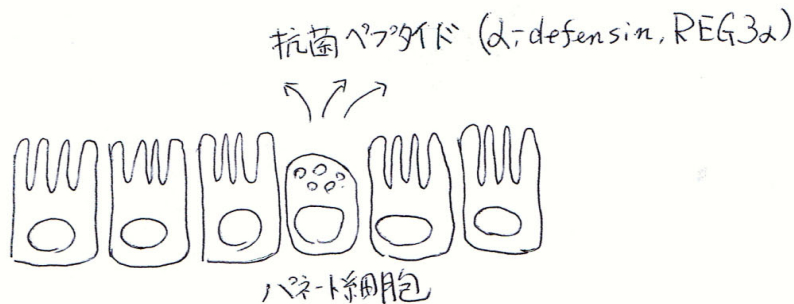 抗菌ペプタイド (α-defensin, REG3α)
パネート細胞